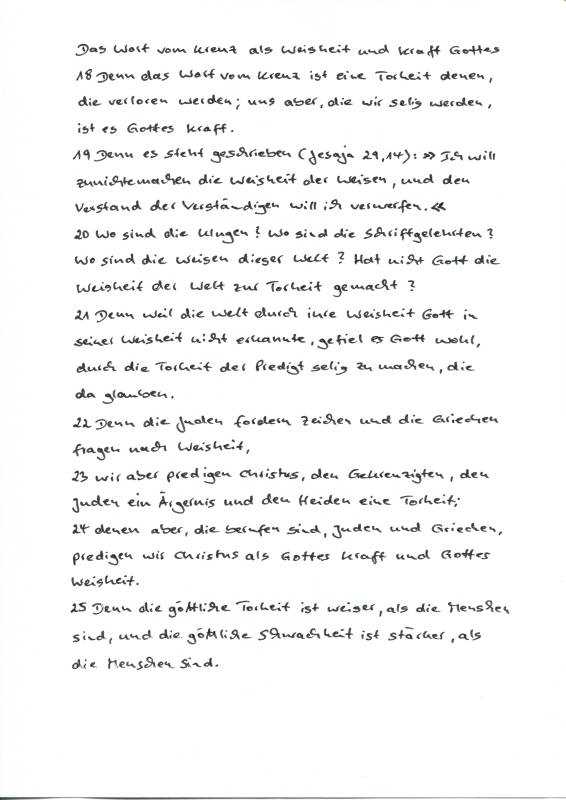 Das Wort vom Kreuz als Weisheit und Kraft Gottes
18 Denn das Wort vom Kreuz ist eine Torheit denen,
die verloren werden; uns aber, die wir selig werden,
ist es Gottes Kraft.
19 Denn es steht geschrieben (Jesaja 29,14): »Ich will
zunichtemachen die Weisheit der Weisen, und den
Verstand der Verständigen will ich verwerfen.«
20 Wo sind die Klugen? Wo sind die Schriftgelehrten?
Wo sind die Weisen dieser Welt? Hat nicht Gott die
Weisheit der Welt zur Torheit gemacht?
21 Denn weil die Welt durch ihre Weisheit Gott in
seiner Weisheit nicht erkannte, gefiel es Gott wohl,
durch die Torheit der Predigt selig zu machen, die
da glauben.
22 Denn die Juden fordern Zeichen und die Griechen
fragen nach Weisheit,
23 wir aber predigen Christus, den Gekreuzigten, den
Juden ein Ärgernis und den Heiden eine Torheit;
24 denen aber, die berufen sind, Juden und Griechen,
predigen wir Christus als Gottes Kraft und Gottes
Weisheit.
25 Denn die göttliche Torheit ist weiser, als die Menschen
sind, und die göttliche Schwachheit ist stärker, als
die Menschen sind.